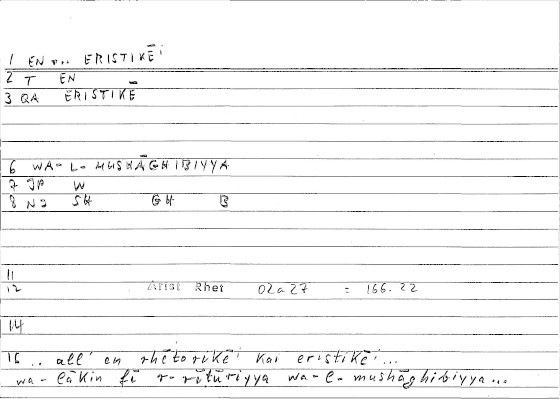 1 EN ... ERISTIKĒⁱ
2 T EN
3 QA ERISTIKĒ
6 WA- L- MUSHĀGHIBIYYA
7 JP W
8 NJ SH GH B
11
12 Arist Rhet 02a27 = 166.22
14
15 .. all' en rhētorikēⁱ kai eristikēⁱ...
wa- lākin fī r-rīṭūriyya wa-l-mushāghibiyya...